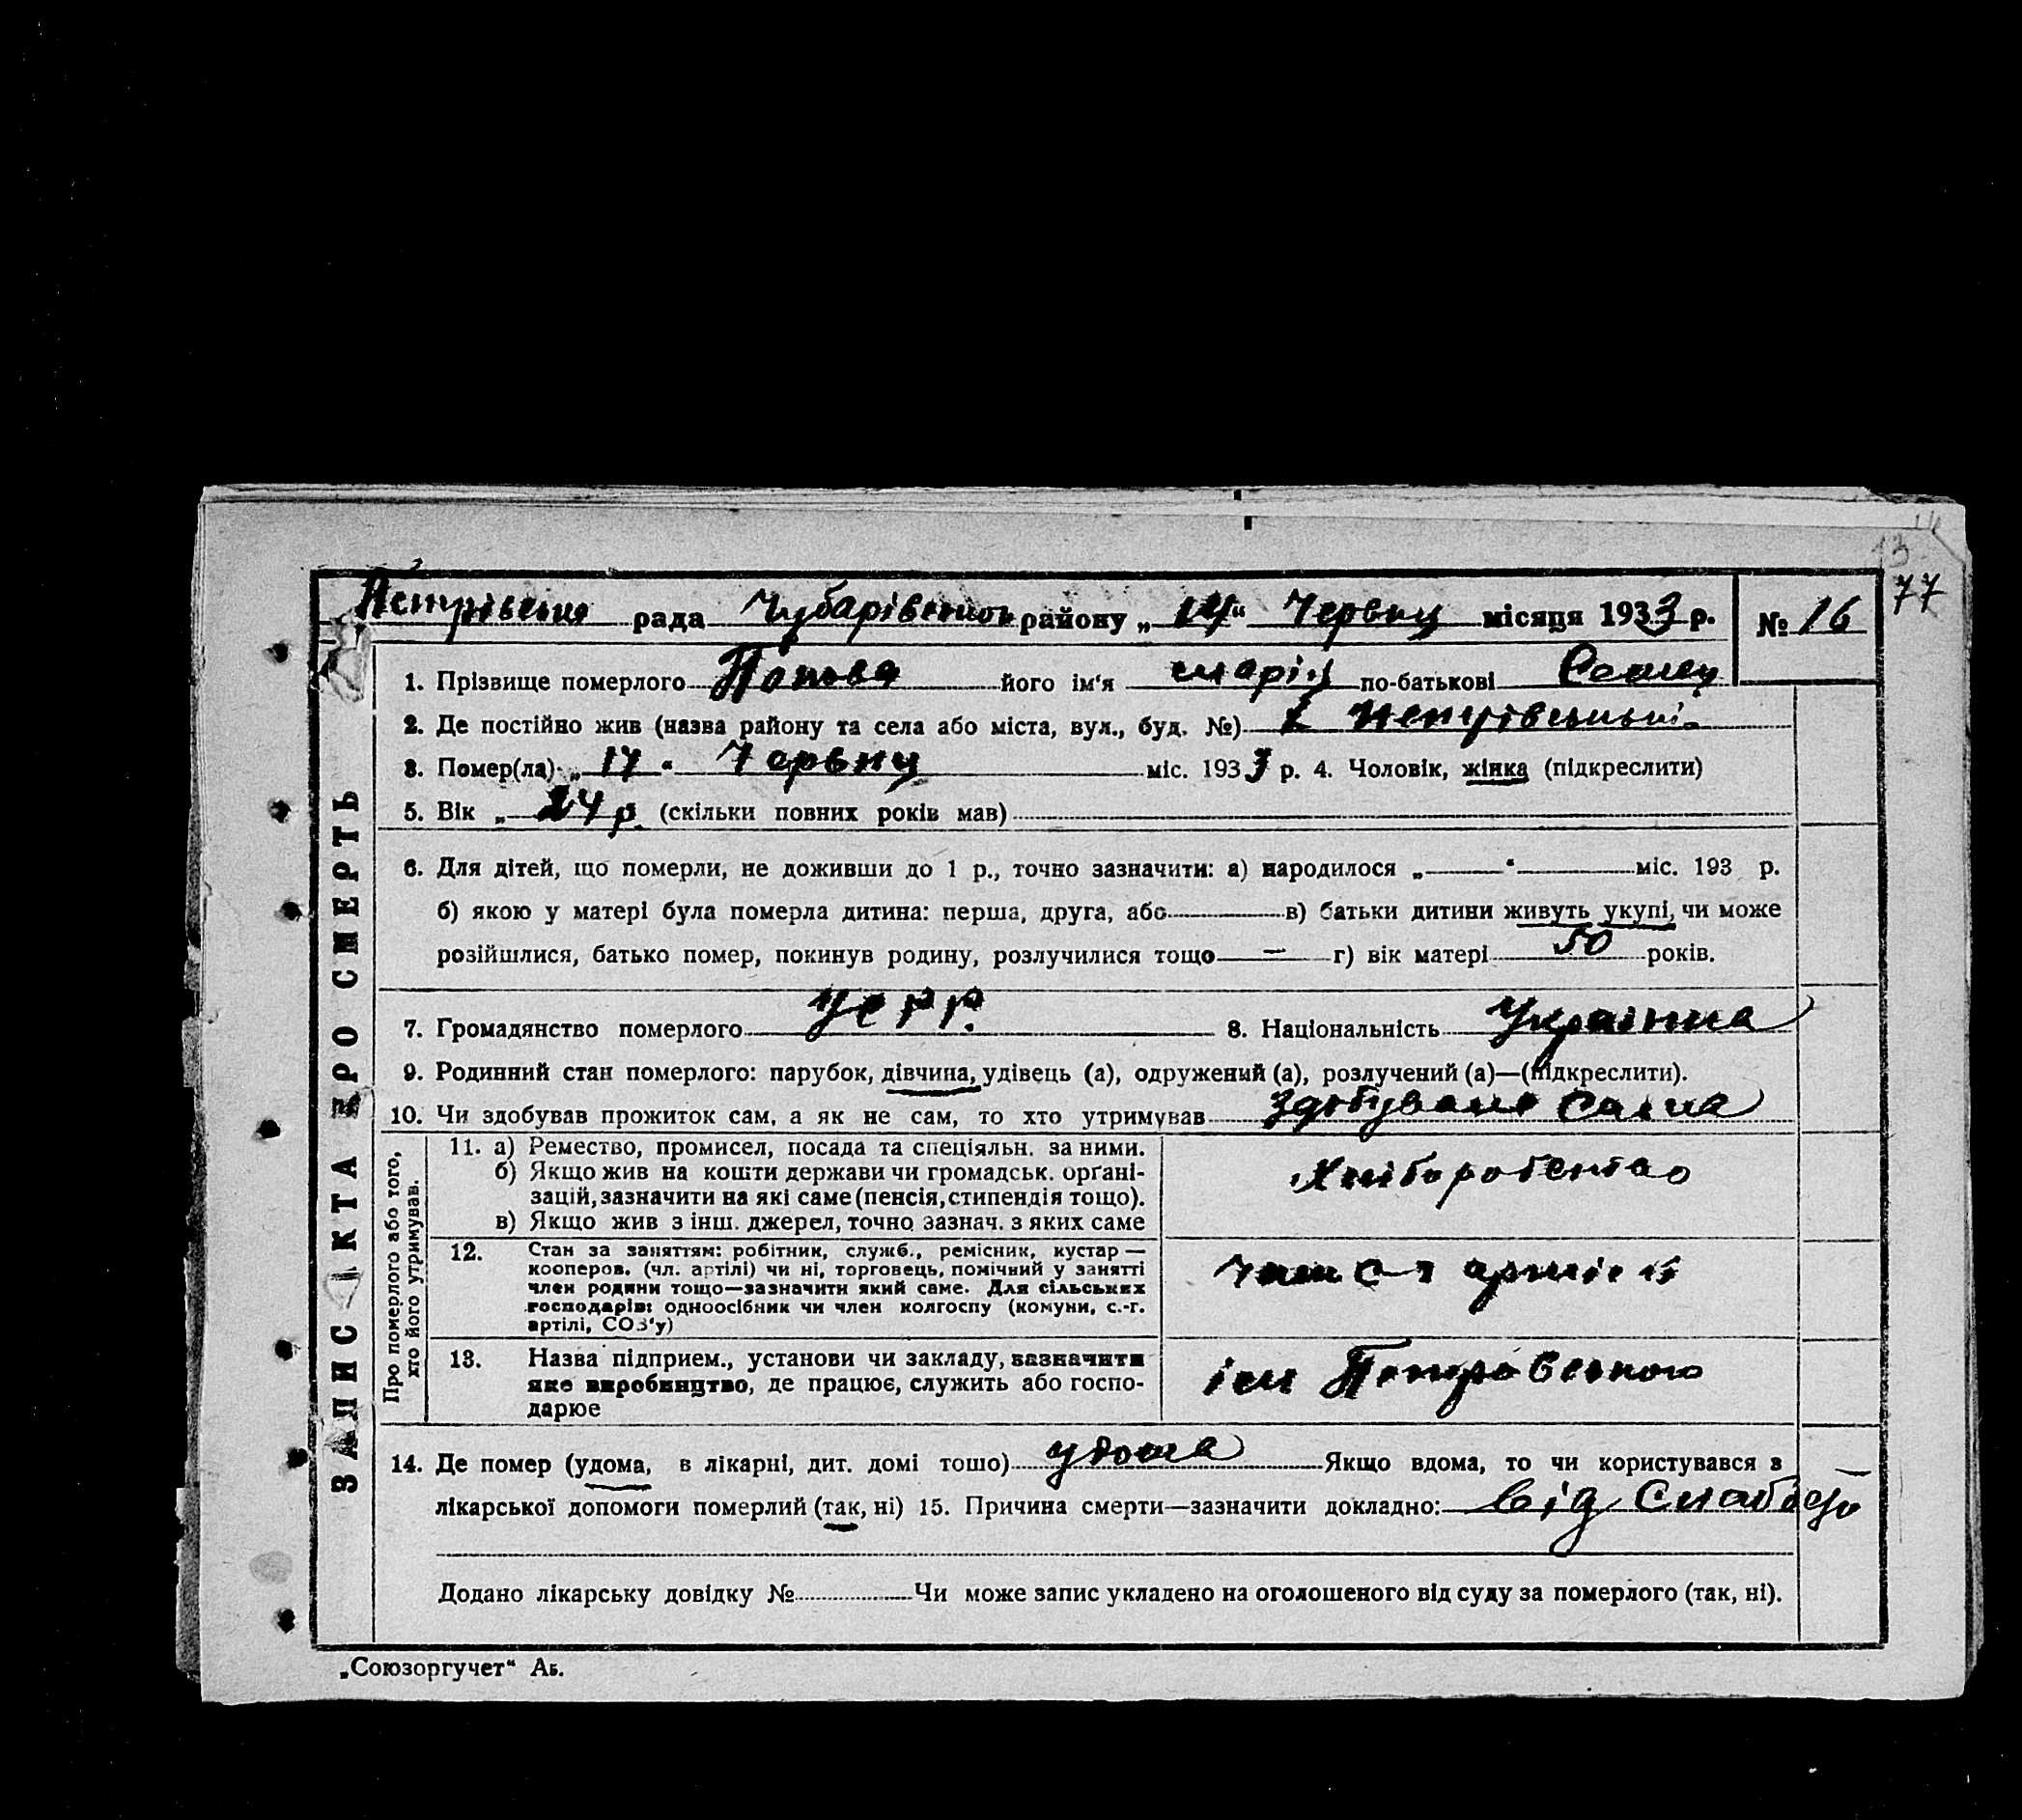 77
Петрівська рада Чубарівського району „ 14 “ Червня місяця 1933 р. № 16
ЗАПИС АКТА ПРО СМЕРТЬ
1. Прізвище померлого Попова його ім‘я марія по-батькові
2. Де постійно жив (назва району та села або міста, вул., буд. №)
3. Помер(ла) „ 17 “ Червня міс. 1933 р. 4. Чоловік, жінка (підкреслити)
5. Вік „ 24 р. (скільки повних років мав)
6. Для дітей, що померли, не доживши до 1 р., точно зазначити: а) народилося „ — “ — міс. 193 р.
б) якою у матері була померла дитина: перша, друга, або — в) батьки дитини живуть укупі, чи може
розійшлися, батько помер, покинув родину, розлучилися тощо — г) вік матері 50 років.
7. Громадянство померлого УСРР. 8. Національність Українка
9. Родинний стан померлого: парубок, дівчина, удівець (а), одружений (а), розлучений (а)—(підкреслити).
10. Чи здобував прожиток сам, а як не сам, то хто утримував здобувала сама
Про померлого або того,
хто його утримував.
11. а) Ремество, промисел, посада та спеціяльн. за ними.
б) Якщо жив на кошти держави чи громадськ. орґані-
зацій, зазначити на які саме (пенсія, стипендія тощо).
в) Якщо жив з інш. джерел, точно зазнач. з яких саме
Хліборобство
12. Стан за заняттям: робітник, служб., ремісник, кустар —
кооперов. (чл. артілі) чи ні, торговець, помічний у занятті
член родини тощо—зазначити який саме. Для сільських
господарів: одноосібник чи член колгоспу (комуни, с.-г.
артілі, СОЗ‘у)
13. Назва підприєм., установи чи закладу, зазначити
яке виробництво, де працює, служить або госпо-
дарює
ім Петровського
14. Де помер (удома, в лікарні, дит. домі тошо) удома Якщо вдома, то чи користувався в
лікарської допомоги померлий (так, ні) 15. Причина смерти—зазначити докладно: від
Додано лікарську довідку № Чи може запис укладено на оголошеного від суду за померлого (так, ні).
„Союзоргучет“ Аб.